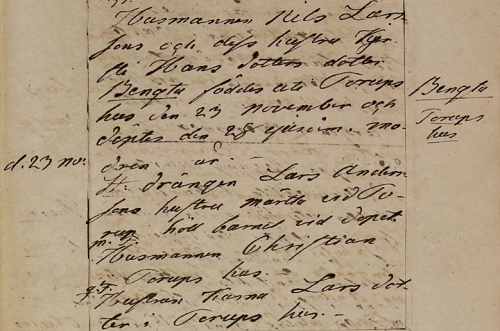 Husmannen Nils Lars
sons och dess hustru Ker-
sti Hans dotters dotter
Bengta föddes uti Torups
hus den 23 november och
döptes den 28 ejusdem. mo-
dren
är
H. drängen Lars Anders
sons hustru märtha vid To-
rup höll barnet vid dopet.
m. Husmannen Christian
i Torups hus.
q. T. Hustrun Karna Lars dot-
ter i Torups hus. -
d. 23 nov.
Bengta
Torups
hus